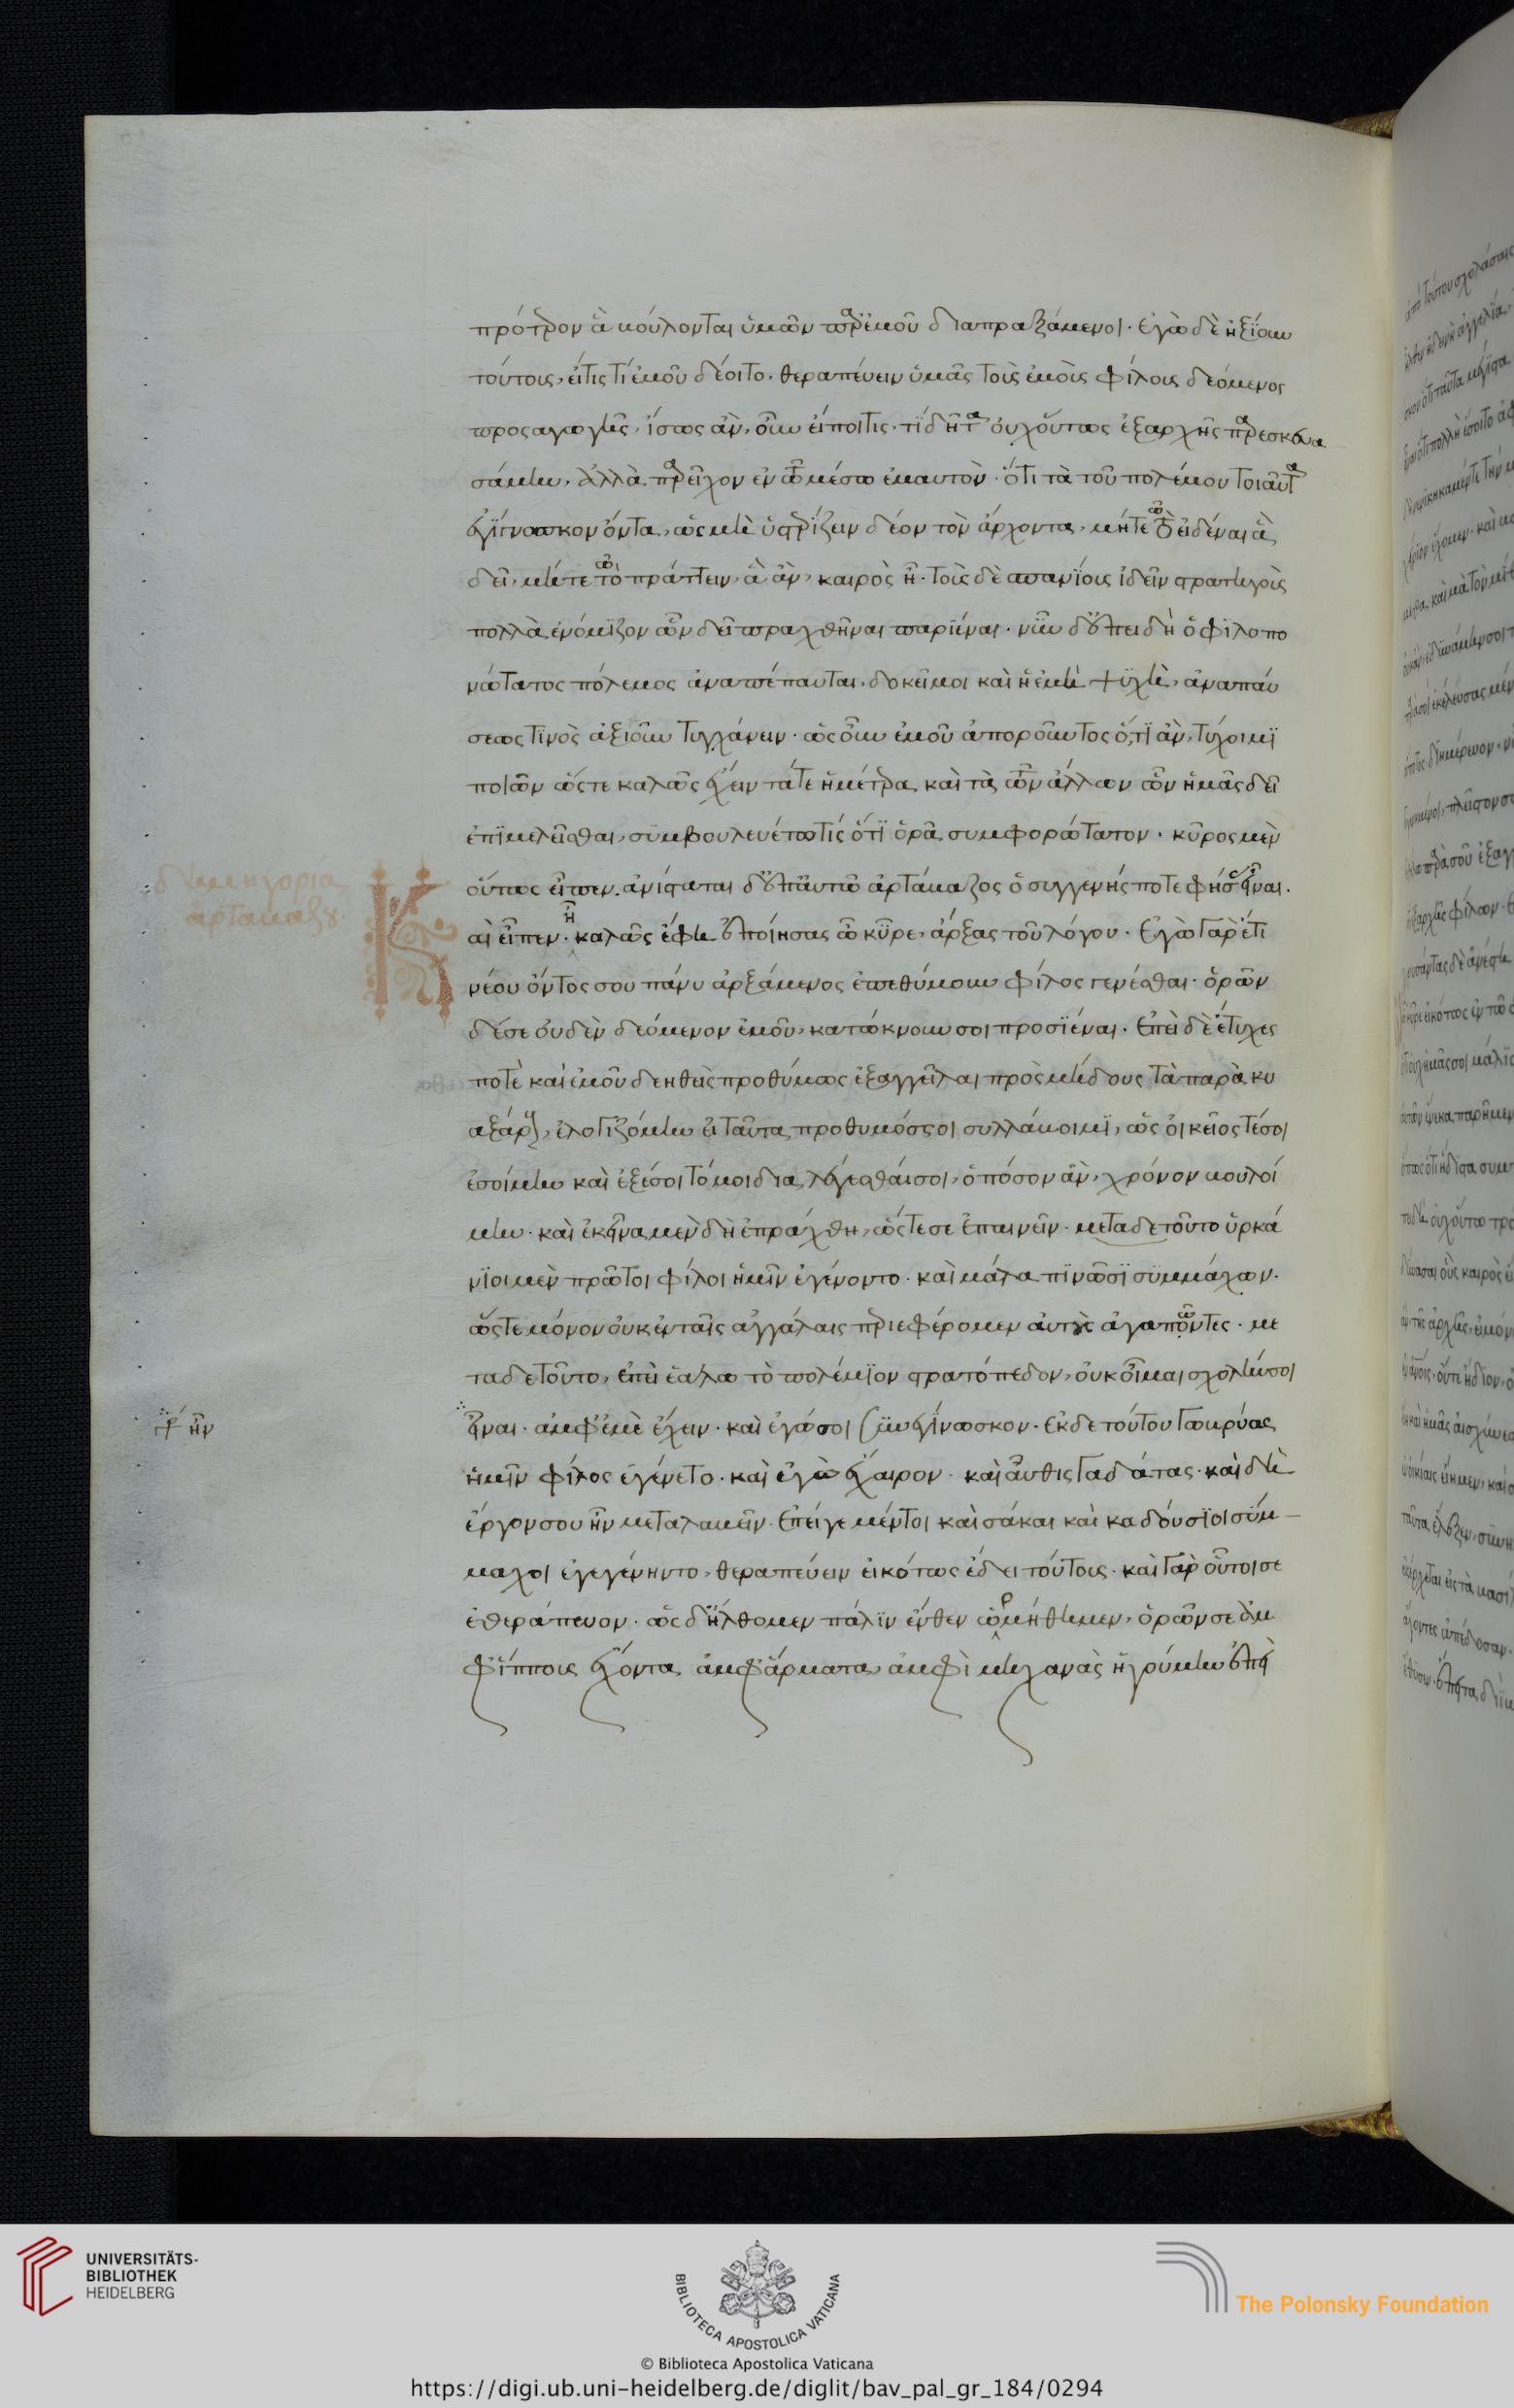 πρότερον ἃ βούλονται ὑμῶν παρ' ἐμοῦ διαπραξάμενοι. ἐγὼ δὲ ἠξίουν
τούτοις, εἴ τις τί ἐμοῦ δέοιτο. θεραπεύειν ὑμᾶς τοὺς ἐμοὺς φίλους δεόμενος
προσαγωγῆς, ἴσως ἂν, οὖν εἴποι τις. τί δῆτα οὐχ οὕτως ἐξ ἀρχῆς παρεσκευα
σάμην, ἀλλὰ παρεῖχον ἐν τῷ μέσῳ ἐμαυτὸν. ὅτι τὰ τοῦ πολέμου τοιαῦτα
ἐγίγνωσκον ὄντα, ὡς μὴ ὑστερίζειν δέον τὸν ἄρχοντα, μήτε τῷ εἰδέναι ἃ
δεῖ, μήτε τῷ πράττειν, ἃ ἂν, καιρὸς ᾖ. τοὺς δὲ σπανίους ἰδεῖν στρατηγοὺς
πολλὰ ἐνόμιζον ὧν δεῖ πραχθῆναι παριέναι. νῦν δ' ἐπειδὴ ὁ φιλοπο
νώτατος πόλεμος ἀναπέπαυται, δοκεῖ μοι καὶ ἡ ἐμὴ ψυχὴ, ἀναπαύ
σεως τινὸς ἀξιοῦν τυγχάνειν. ὡς οὖν ἐμοῦ ἀποροῦντος ὅ,τι ἂν, τύχοιμι
ποιῶν ὥστε καλῶς ἔχειν τά τε ἡμέτερα, καὶ τὰ τῶν ἄλλων ὧν ἡμᾶς δεῖ
ἐπιμελεῖσθαι, συμβουλευέτω τίς ὅτι ὁρᾷ συμφορώτατον. κῦρος μὲν
οὕτως εἶπεν. ἀνίσταται δ' ἐπ' αὐτῷ ἀρτάβαζος ὁ συγγενής ποτε φήσας εἶναι.
δημηγορία
ἀρταβάζου
Καὶ εἶπεν. ἦ καλῶς ἔφη ἐποίησας ὦ κῦρε, ἄρξας τοῦ λόγου. ἐγὼ γὰρ ἔτι
νέου ὄντος σου πάνυ ἀρξάμενος ἐπεθύμουν φίλος γενέσθαι. ὁρῶν
δέ σε οὐδὲν δεόμενον ἐμοῦ, κατώκνουν σοι προσιέναι. ἐπεὶ δὲ ἔτυχες
ποτὲ καὶ ἐμοῦ δεηθεὶς προθύμως ἐξαγγεῖλαι πρὸς μήδους τὰ παρὰ κυ
αξάρου, ἐλογιζόμην εἰ ταῦτα προθυμός σοι συλλάβοιμι, ὡς οἰκεῖος τέ σοι
ἐσοίμην καὶ ἐξέσοιτό μοι διαλέγεσθαί σοι, ὁπόσον ἂν, χρόνον βουλοί
μην. καὶ ἐκεῖνα μὲν δὴ ἐπράχθη, ὥστε σε ἐπαινεῖν. μετὰ δὲ τοῦτο ὑρκά
νιοι μὲν πρῶτοι φίλοι ἡμῖν ἐγένοντο. καὶ μάλα πινῶσι συμμάχων.
ὥστε μόνον οὐκ ἐν ταῖς ἀγκάλαις περιεφέρομεν αὐτοὺς ἀγαπῶντες. με
τὰ δὲ τοῦτο, ἐπεὶ ἑάλω τὸ πολέμιον στρατόπεδον, οὐκ οἶμαι σχολήν σοι
γρ ἦν
εἶναι. ἀμφ' ἐμὲ ἔχειν. καὶ ἐγώ σοι συνεγίνωσκον. ἐκ δὲ τούτου γωβρύας
ἡμῖν φίλος ἐγένετο. καὶ ἐγὼ ἔχαιρον. καὶ αὖθις γαδάτας. καὶ δὴ
ἔργον σου ἦν μεταλαβεῖν. ἐπεί γε μέντοι καὶ σάκαι καὶ καδούσιοι σύμ
μαχοι ἐγεγένηντο, θεραπεύειν εἰκότως ἔδει τούτους. καὶ γὰρ οὗτοι σε
ἐθεράπευον. ὡς δ' ἤλθομεν πάλιν ἔνθεν ὡρμήθημεν, ὁρῶν σε ἀμ
φ' ἵππους ἔχοντα, ἀμφ' ἅρματα, ἀμφὶ μηχανὰς ἡγούμην ἐπεὶ
UNIVERSITÄTS-
BIBLIOTHEK
HEIDELBERG
BIBLIOTECA APOSTOLICA VATICANA
The Polonsky Foundation
© Biblioteca Apostolica Vaticana
https://digi.ub.uni-heidelberg.de/diglit/bav_pal_gr_184/0294